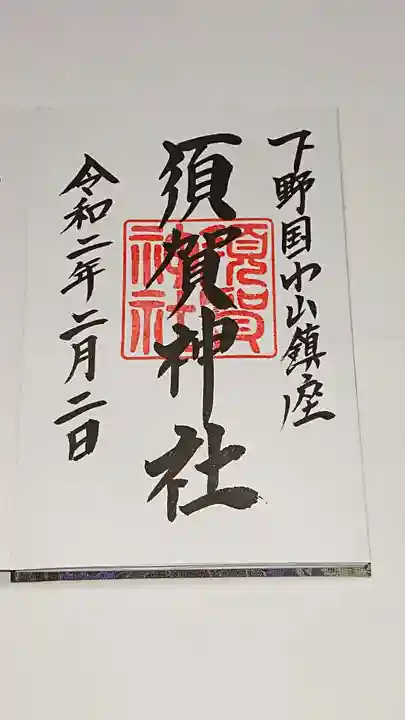 下野国小山鎮座
須賀神社
令和二年二月二日
須賀
神社